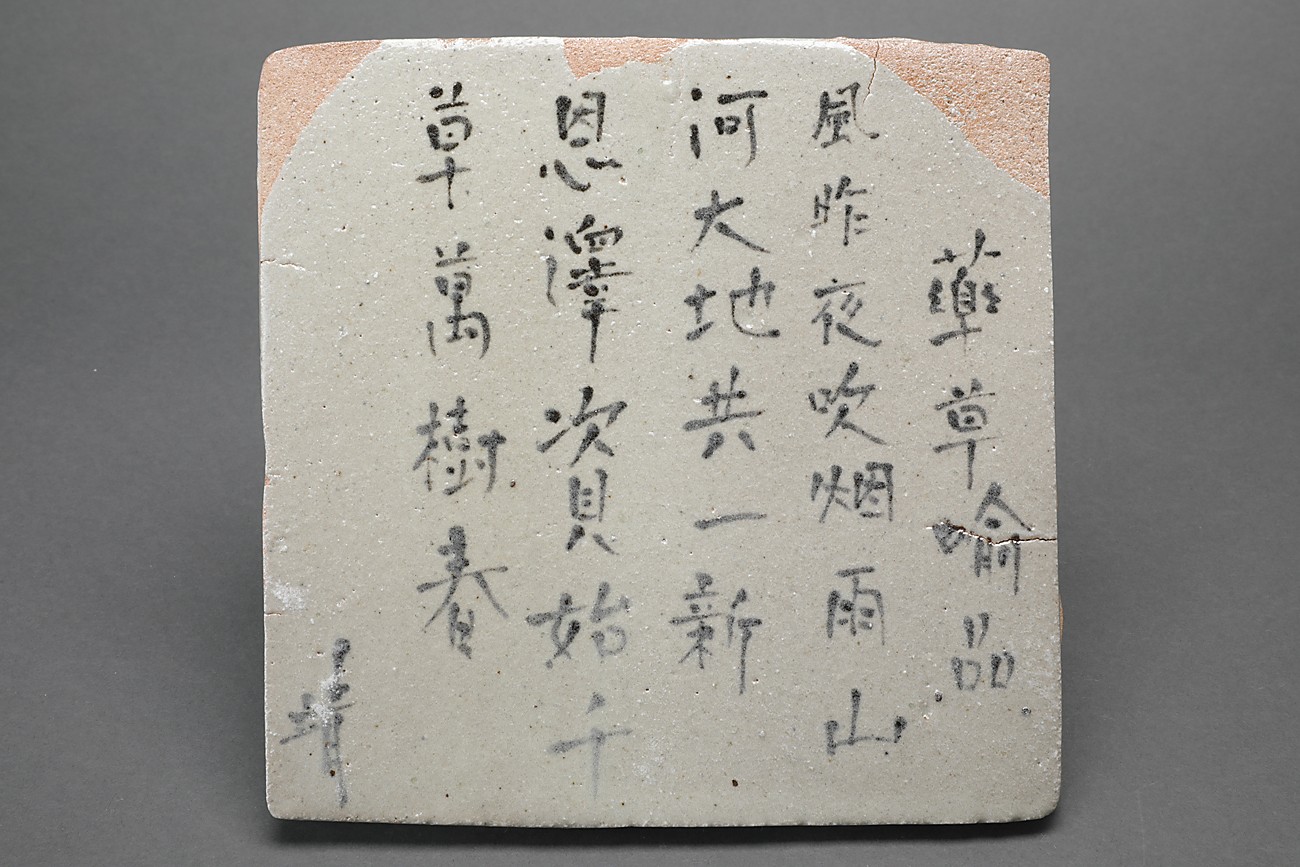 藥草喻品
風昨夜吹烟雨山
河大地共一新
恩澤次具始千
草萬樹春
靖